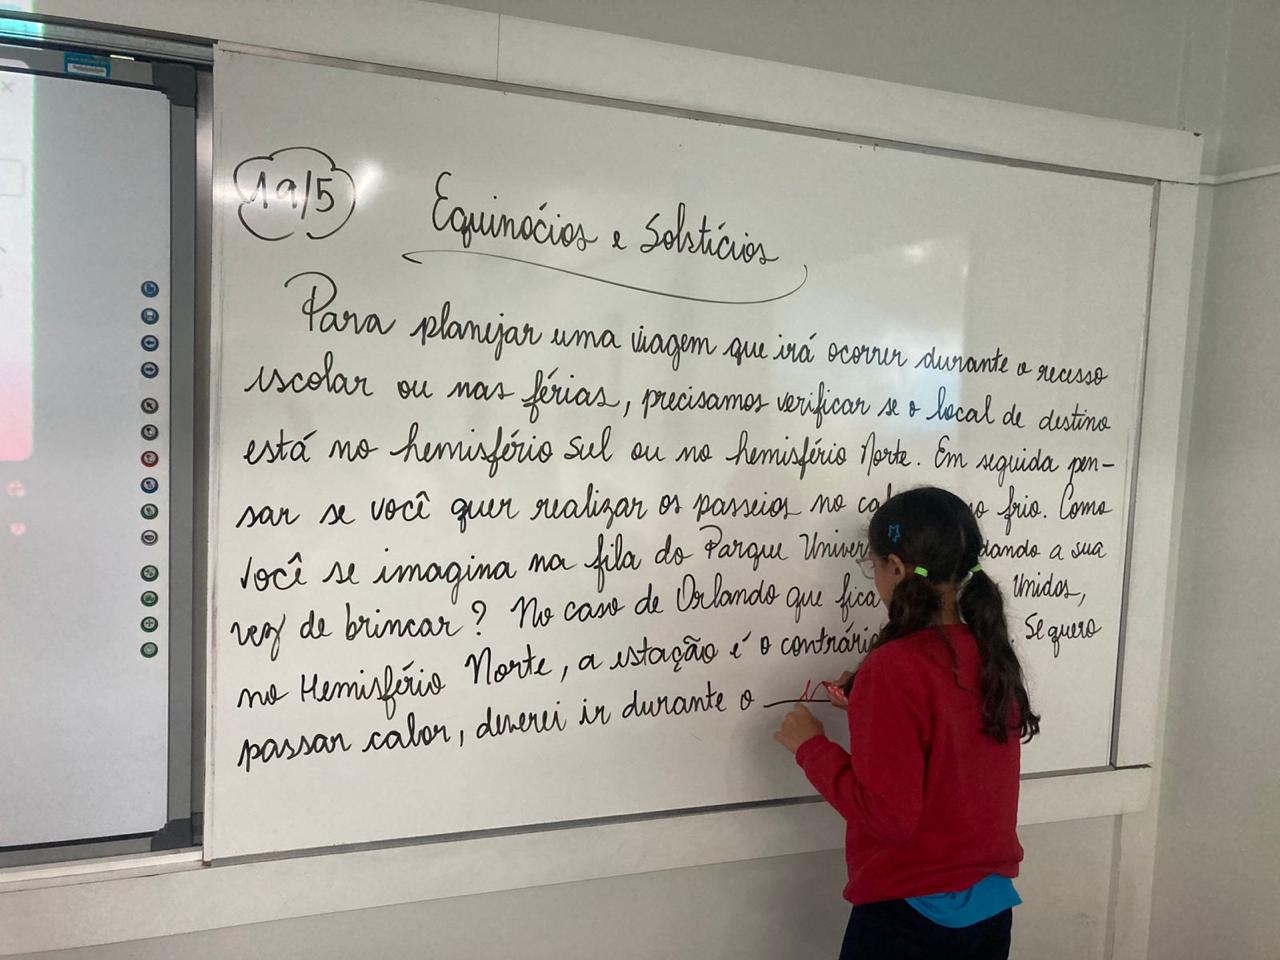 19/5
Equinócios e Solstícios
Para planejar uma viagem que irá ocorrer durante o recesso
escolar ou nas férias, precisamos verificar se o local de destino
está no hemisfério sul ou no hemisfério Norte. Em seguida pen-
sar se você quer realizar os passeios no frio. Como
você se imagina na fila do Parque a sua
vez de brincar? No caso de Orlando que fica Unidos,
no Hemisfério Norte, a estação é o contrário Se quero
passar calor, deverei ir durante o